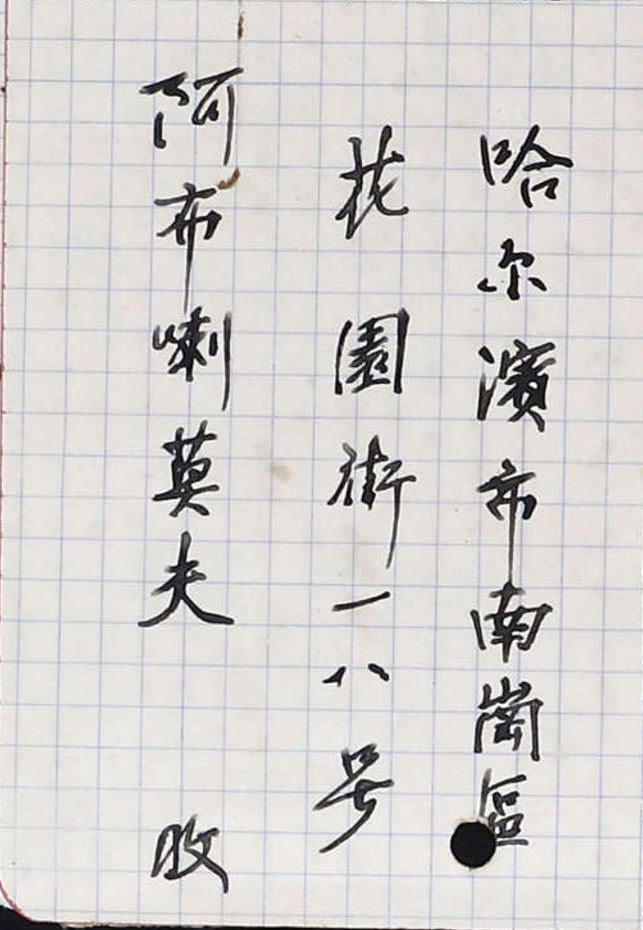 哈尔濱市南崗區
花園街一八号
阿布喇莫夫 收